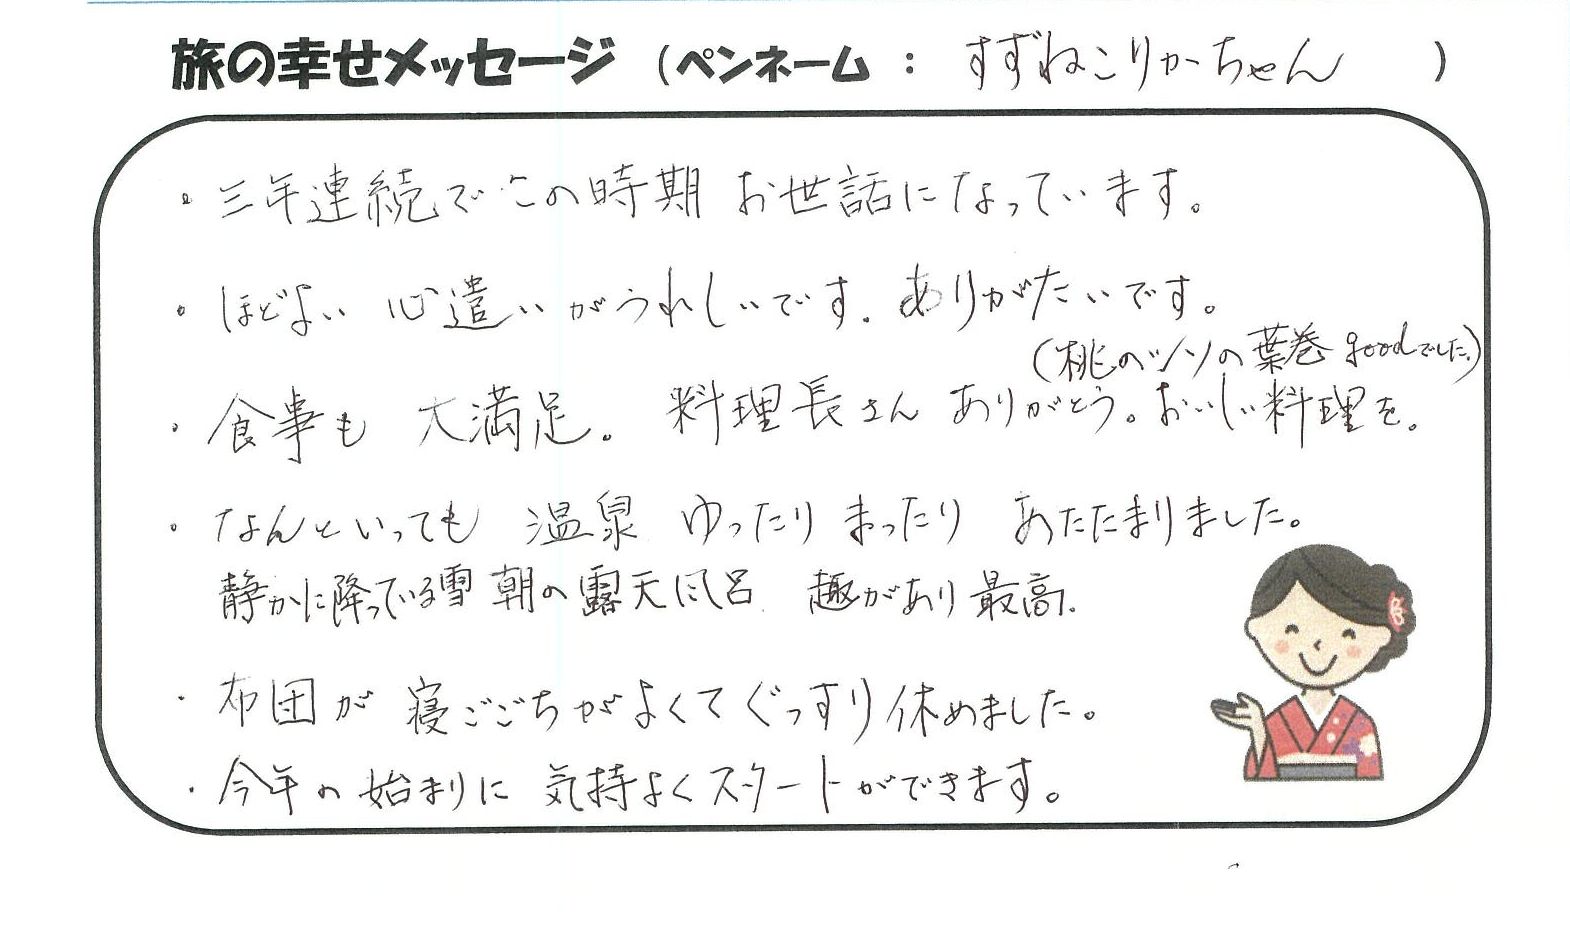 旅の幸せメッセージ (ペンネーム : すずねこりかちゃん )
・三年連続でこの時期 お世話になっています。
・ほどよい 心遣いがうれしいです. ありがたいです。
(桃のシソの葉巻 goodでした.)
・食事も 大満足。 料理長さん ありがとう。おいしい料理を。
・なんといっても 温泉 ゆったり まったり あたたまりました。
静かに降っている雪 朝の露天風呂 趣があり 最高.
・布団が 寝ごごちがよくてぐっすり休めました。
・今年の始まりに 気持よくスタートができます。